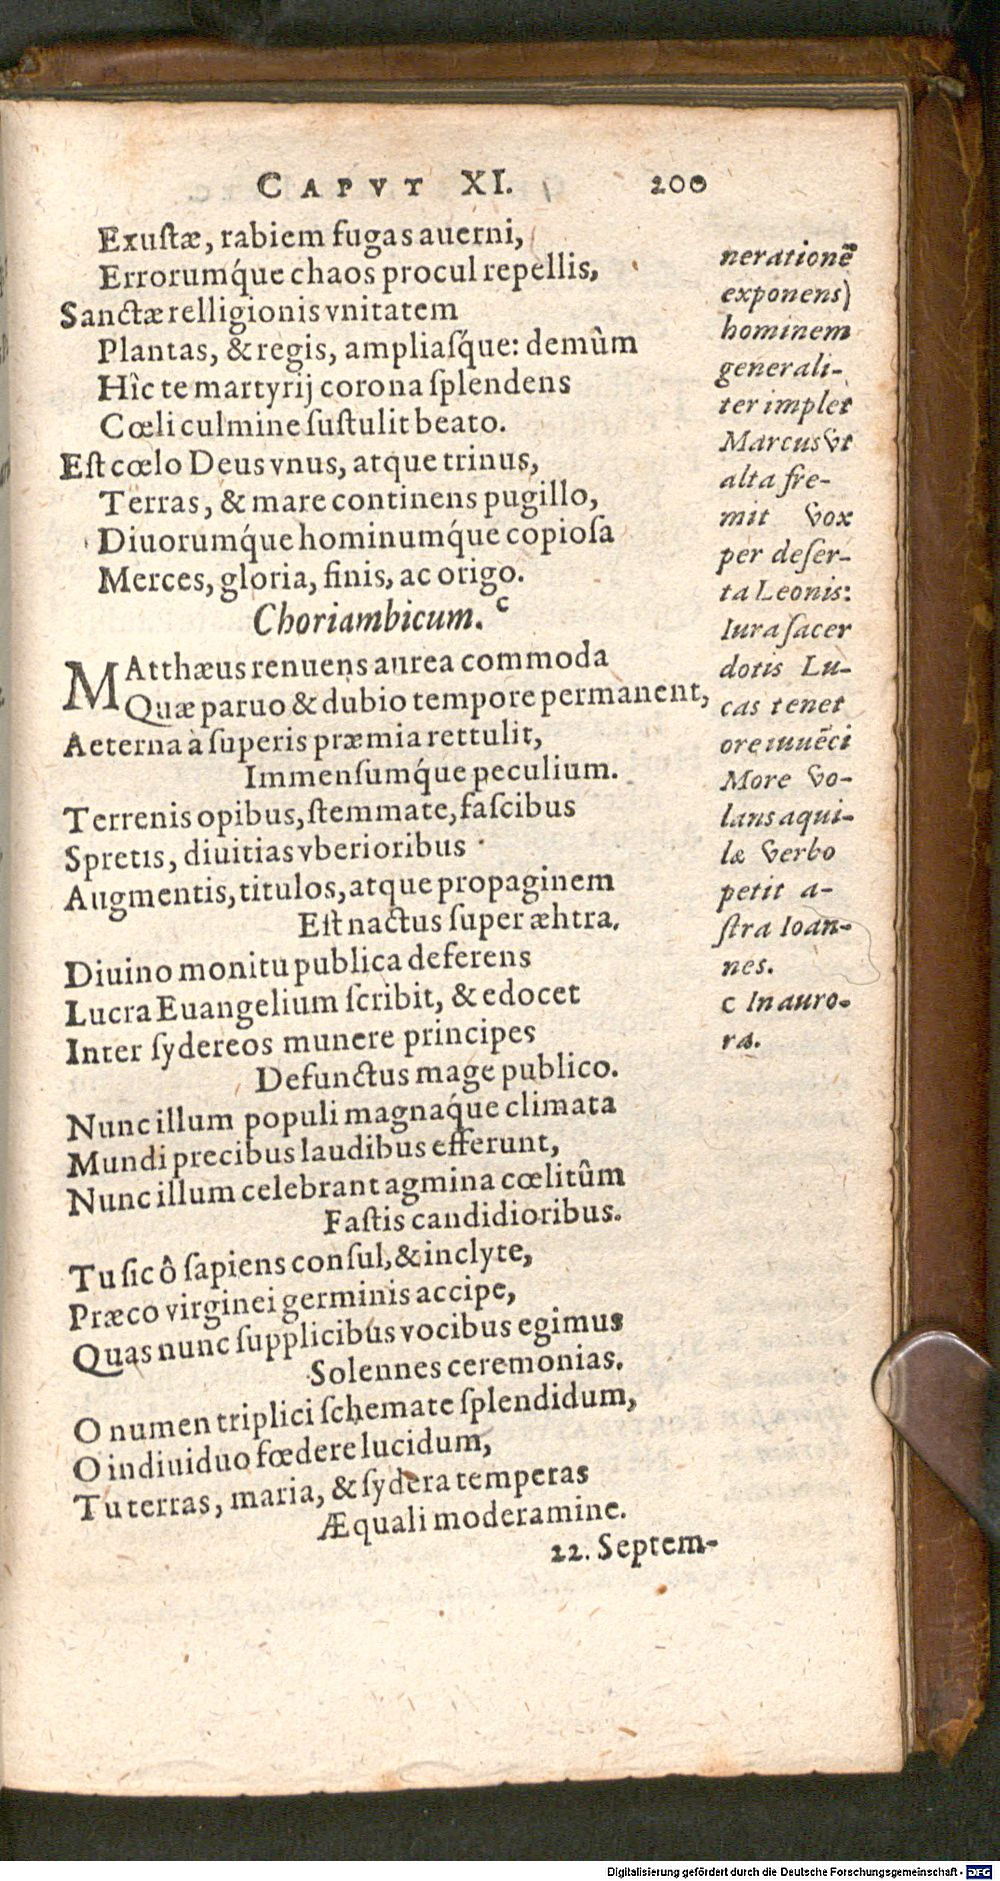 CAPVT XI. 200
Exustæ, rabiem fugas auerni,
Errorumq́ue chaos procul repellis,
Sanctæ relligionis vnitatem
Plantas, & regis, ampliasq́ue: demùm
Hîc te martyrij corona splendens
Cœli culmine sustulit beato.
Est cœlo Deus vnus, atque trinus,
Terras, & mare continens pugillo,
Diuorumq́ue hominumq́ue copiosa
Merces, gloria, finis, ac origo.
Choriambicum. c
MAtthæus renuens aurea commoda
Quæ paruo & dubio tempore permanent,
Aeterna à superis præmia rettulit,
Immensumq́ue peculium.
Terrenis opibus, stemmate, fascibus
Spretis, diuitias vberioribus
Augmentis, titulos, atque propaginem
Est nactus super æhtra.
Diuino monitu publica deferens
Lucra Euangelium scribit, & edocet
Inter sydereos munere principes
Defunctus mage publico.
Nunc illum populi magnaq́ue climata
Mundi precibus laudibus efferunt,
Nunc illum celebrant agmina cœlitûm
Fastis candidioribus.
Tu sic ô sapiens consul, & inclyte,
Præco virginei germinis accipe,
Quas nunc supplicibus vocibus egimus
Solennes ceremonias.
O numen triplici schemate splendidum,
O indiuiduo fœdere lucidum,
Tu terras, maria, & sydera temperas
Æquali moderamine.
22. Septem-
nerationẽ
exponens)
hominem
generali-
ter implet
Marcus vt
alta fre-
mit vox
per deser-
ta Leonis:
Iura sacer
dotis Lu-
cas tenet
ore iuuẽci
More vo-
lans aqui-
læ verbo
petit a-
stra Ioan-
nes.
c In auro-
ra.
Digitalisierung gefördert durch die Deutsche Forschungsgemeinschaft - DFG